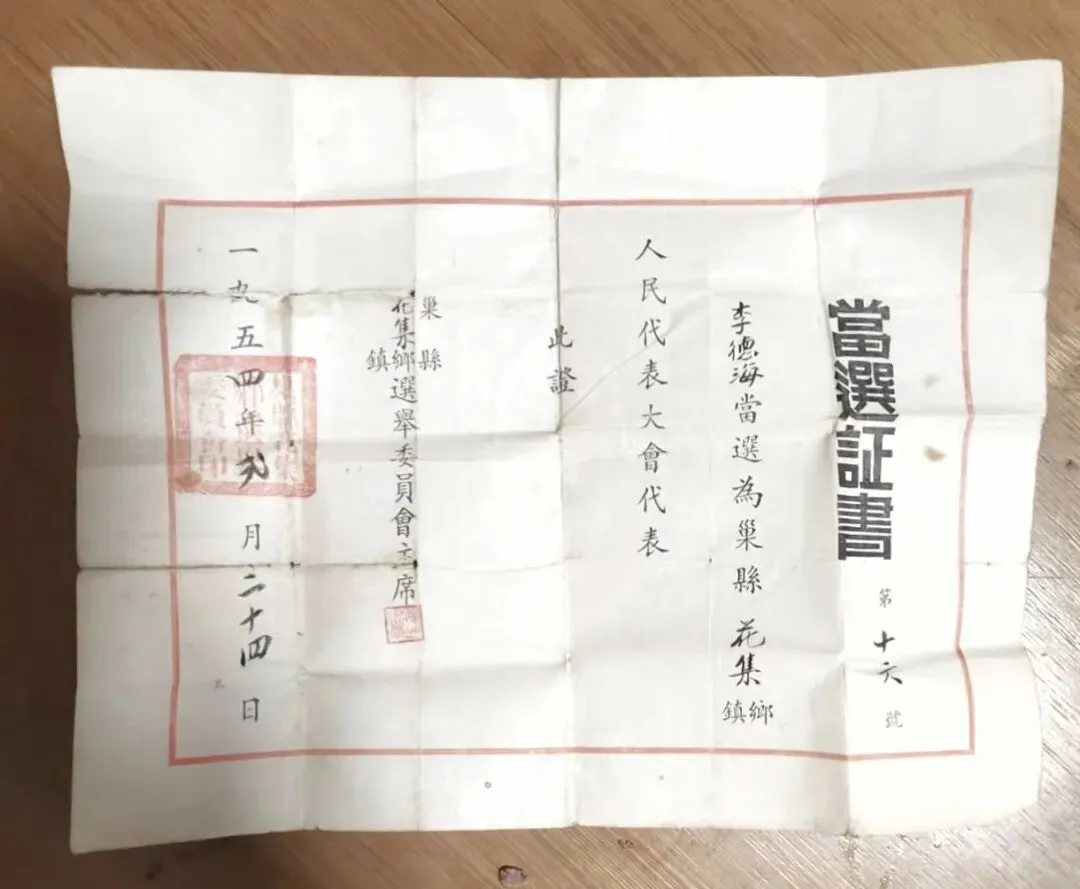 當選証書
第十六號
李德海當選為巢縣花集鄉鎮
人民代表大會代表
此證
巢縣
花集鄉鎮選舉委員會主席
一九五四年月二十四日